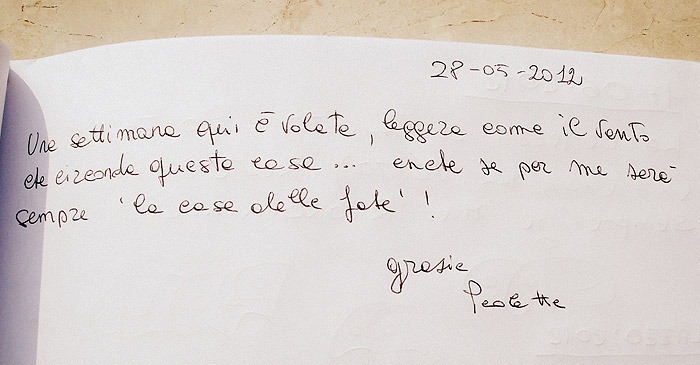 28-05-2012
Una settimana qui è volata, leggera come il vento
che circonda questa casa... anche se per me sarà
sempre 'la casa delle fate'!
grazie
Paoletta